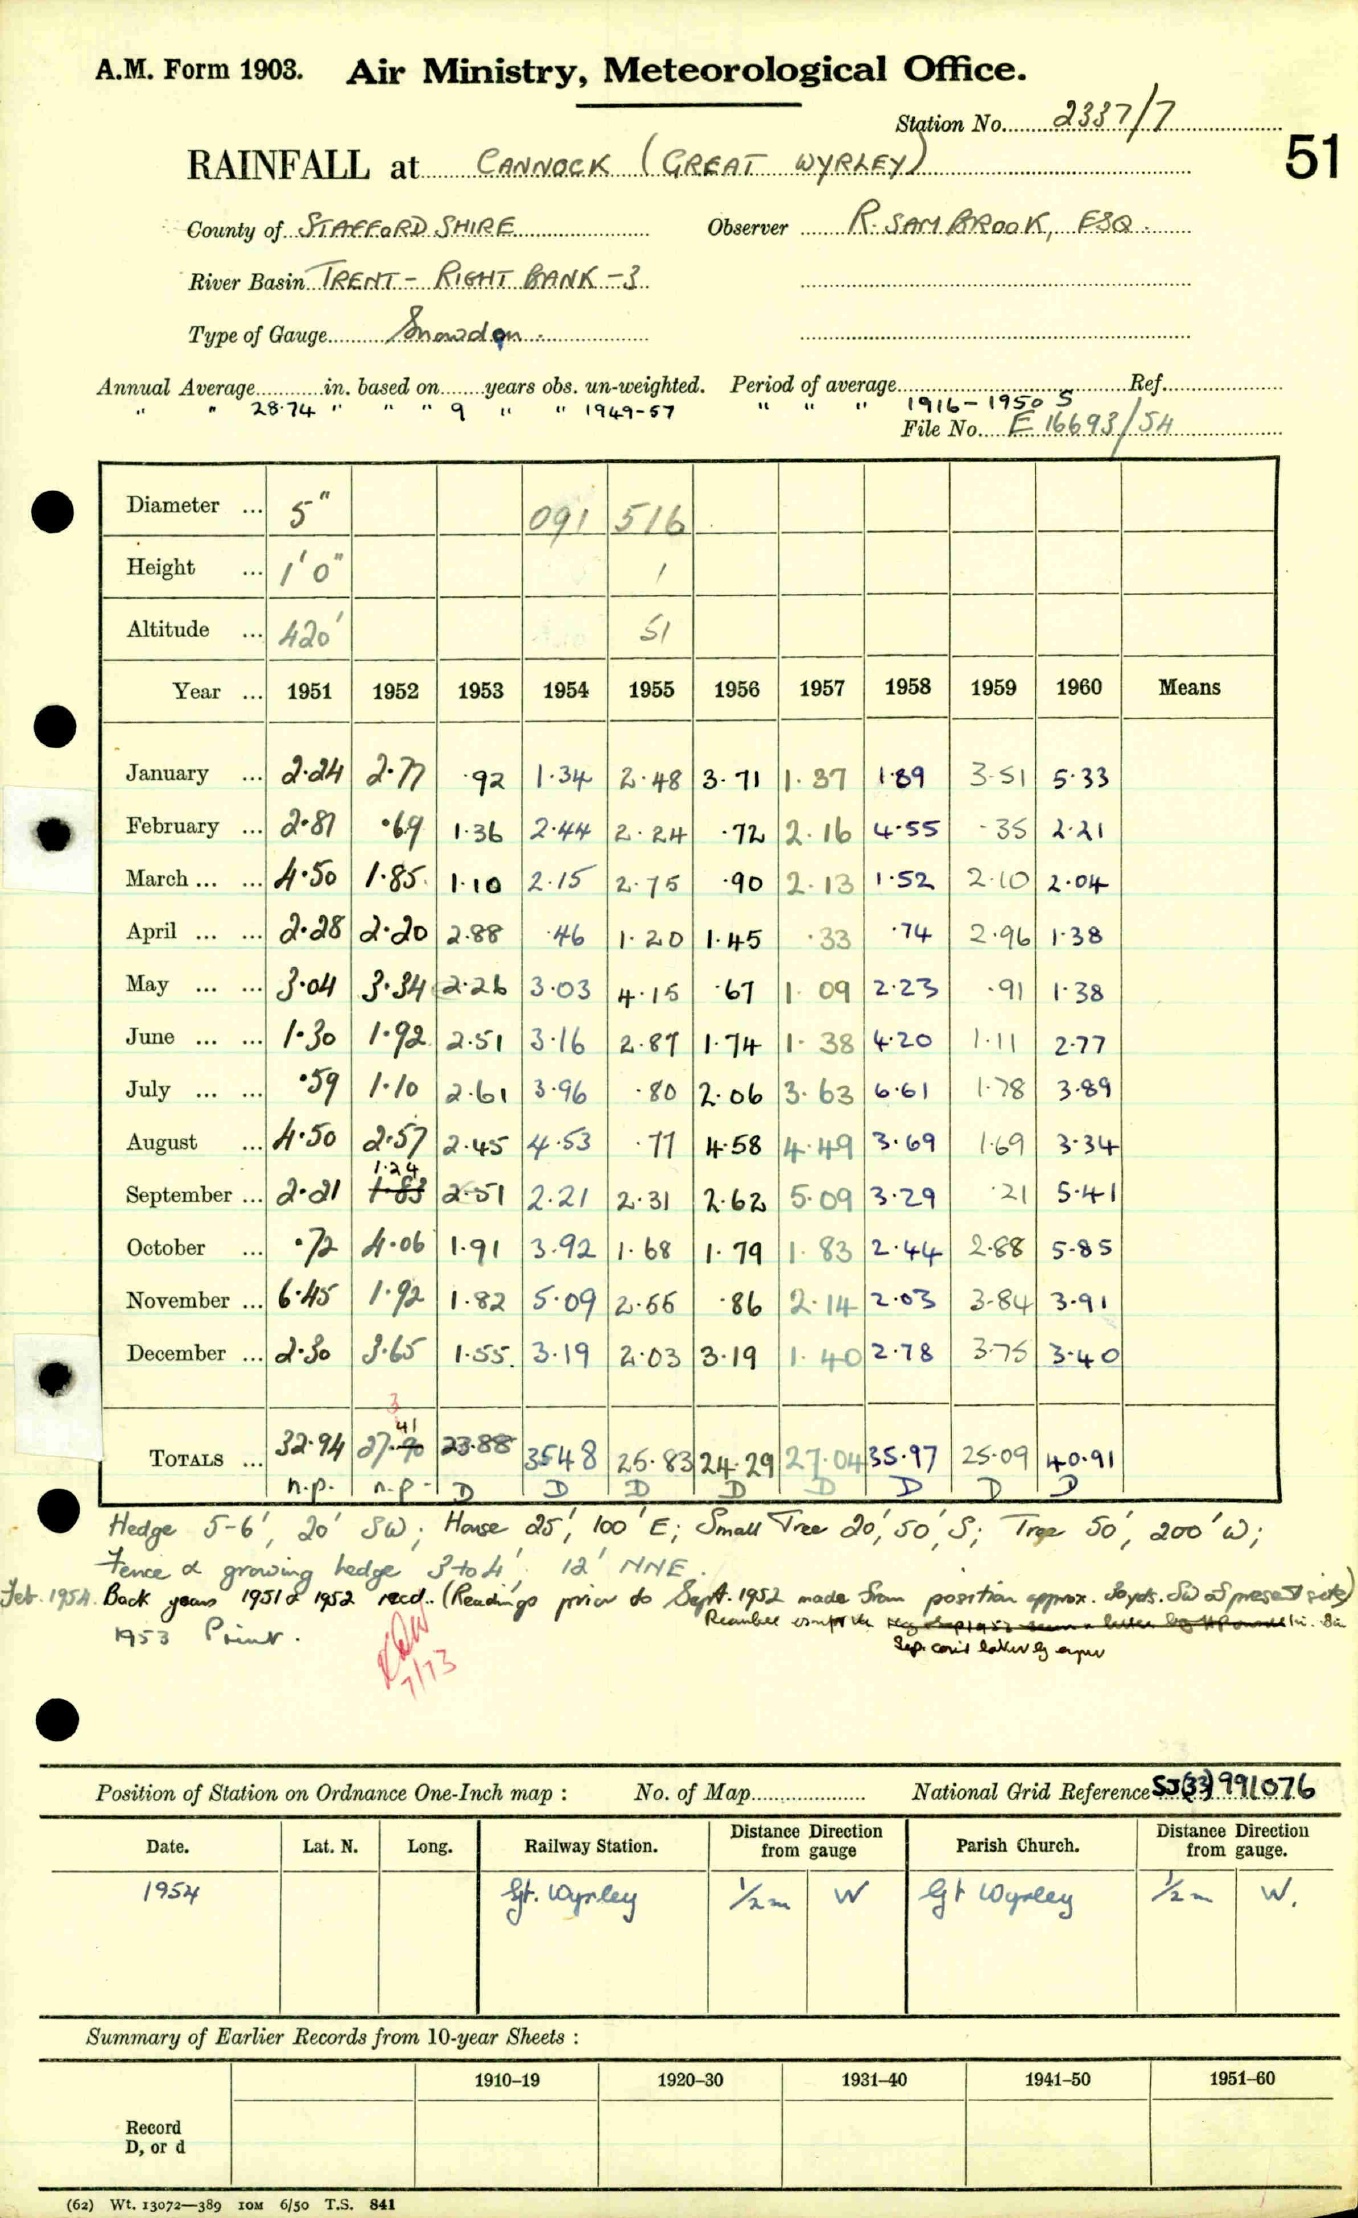 A.M. Form 1903. Air Ministry, Meteorological Office.
Station No. 2337/7
51
RAINFALL at CANNOCK (GREAT WYRLEY)
County of STAFFORDSHIRE Observer R. SAMBROOK, ESQ.
River Basin TRENT – RIGHT BANK – 3
Type of Gauge Snowdon.
Annual Average in. based on years obs. un-weighted. Period of average Ref.
" " 28.74 " " " 9 " " 1949-57 " " " 1916-1950 S
File No. E 16693/54
Diameter ... 5" 091 516
Height ... 1' 0" 1
Altitude ... 420' 51
Year ... 1951 1952 1953 1954 1955 1956 1957 1958 1959 1960 Means
January ... 2.24 2.77 .92 1.34 2.48 3.71 1.37 1.89 3.51 5.33
February ... 2.81 .69 1.36 2.44 2.24 .72 2.16 4.55 .35 2.21
March ... ... 4.50 1.85 1.10 2.15 2.75 .90 2.13 1.52 2.10 2.04
April ... ... 2.28 2.20 2.88 .46 1.20 1.45 .33 .74 2.96 1.38
May ... ... 3.04 3.34 2.26 3.03 4.15 .67 1.09 2.23 .91 1.38
June ... ... 1.30 1.92 2.51 3.16 2.87 1.74 1.38 4.20 1.11 2.77
July ... ... .59 1.10 2.61 3.96 .80 2.06 3.63 6.61 1.78 3.89
August ... 4.50 2.57 2.45 4.53 .77 4.58 4.49 3.69 1.69 3.34
1.24
September ... 2.21 1.83 2.51 2.21 2.31 2.62 5.09 3.29 .21 5.41
October ... .72 4.06 1.91 3.92 1.68 1.79 1.83 2.44 2.88 5.85
November ... 6.45 1.92 1.82 5.09 2.55 .86 2.14 2.03 3.84 3.91
December ... 2.30 3.65 1.55 3.19 2.03 3.19 1.40 2.78 3.75 3.40
3
41
TOTALS ... 32.94 27.90 23.88 35.48 25.83 24.29 27.04 35.97 25.09 40.91
n.p. n.p. D D D D D D D D
Hedge 5-6', 20' SW; House 25', 100' E; Small Tree 20', 50', S; Tree 50', 200' W;
Fence & growing hedge 3 to 4', 12' NNE.
Feb. 1954. Back years 1951 & 1952 recd. (Readings prior to Sept. 1952 made from position approx. yds. SW of present site)
1953 Print.
7/73
Position of Station on Ordnance One-Inch map : No. of Map National Grid Reference SJ(33)991076
Date. Lat. N. Long. Railway Station. Distance from gauge Direction Parish Church. Distance from gauge. Direction
1954 Gt. Wyrley 1/2 m W Gt Wyrley 1/2 m W.
Summary of Earlier Records from 10-year Sheets :
1910–19 1920–30 1931–40 1941–50 1951–60
Record
D, or d
(62) Wt. 13072—389 10M 6/50 T.S. 841